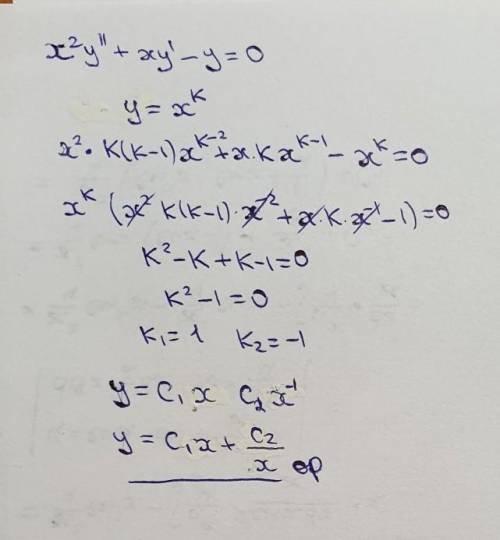 x²y'' + xy' - y = 0
y = x^K
x² · K(K-1)x^(K-2) + x · K x^(K-1) - x^K = 0
x^K (x² K(K-1) · x^(-2) + x · K · x^(-1) - 1) = 0
K² - K + K - 1 = 0
K² - 1 = 0
K₁ = 1 K₂ = -1
y = C₁ x C₂ x^(-1)
y = C₁ x + C₂/x ор